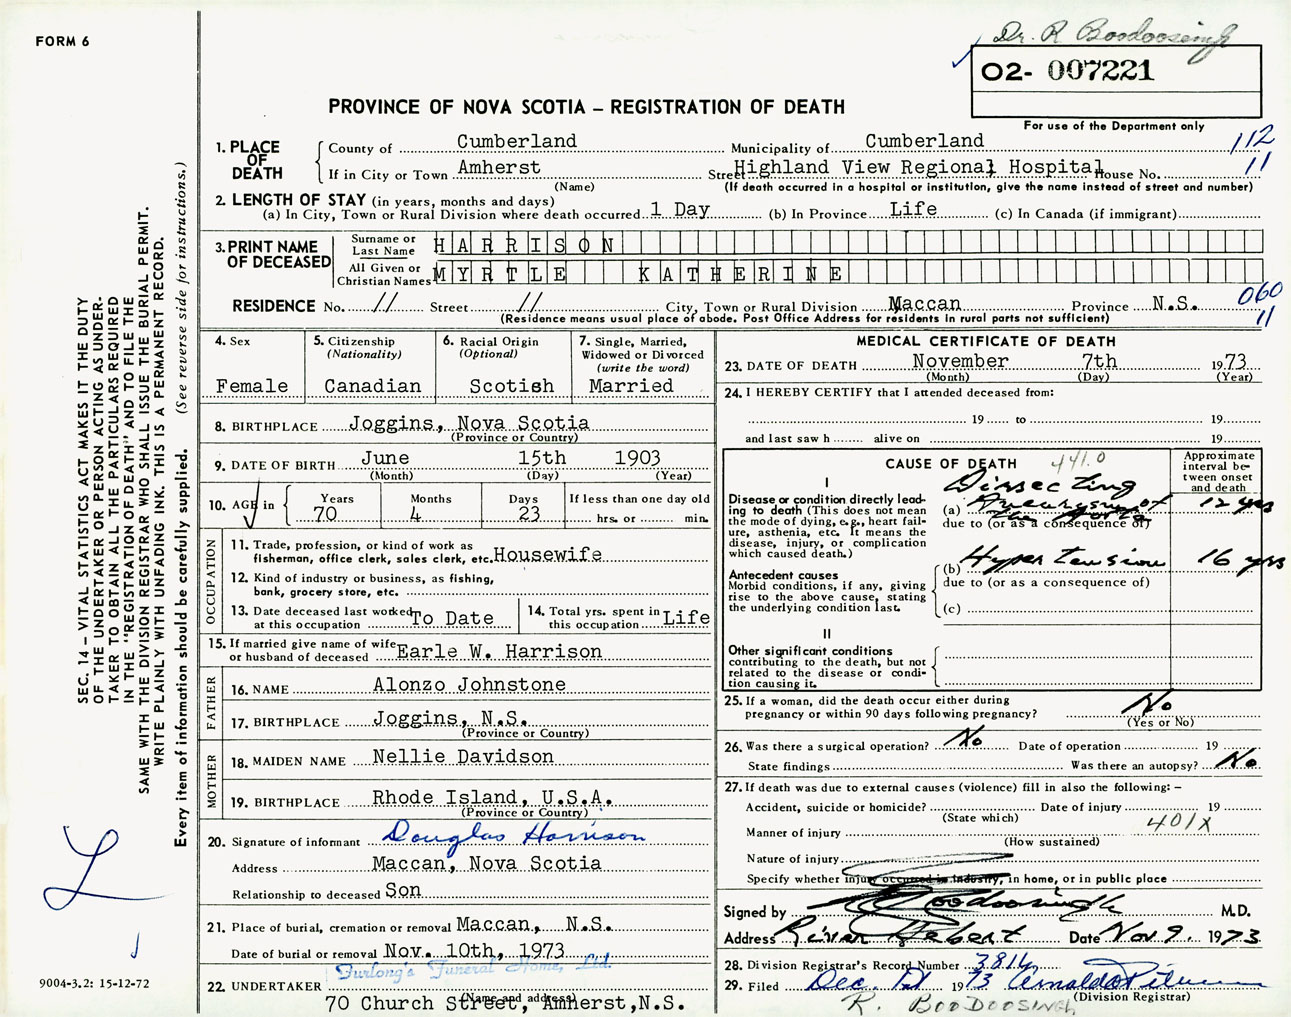 FORM 6
Dr. R Boodoosingh
02- 007221
PROVINCE OF NOVA SCOTIA – REGISTRATION OF DEATH
For use of the Department only
1. PLACE OF DEATH
County of Cumberland Municipality of Cumberland 112
If in City or Town Amherst Street Highland View Regional Hospital House No. 11
(Name) (If death occurred in a hospital or institution, give the name instead of street and number)
2. LENGTH OF STAY (in years, months and days)
(a) In City, Town or Rural Division where death occurred 1 Day (b) In Province Life (c) In Canada (if immigrant)
3. PRINT NAME OF DECEASED
Surname or Last Name HARRISON
All Given or Christian Names MYRTLE KATHERINE
RESIDENCE No. // Street // City, Town or Rural Division Maccan Province N.S. 060
11
(Residence means usual place of abode. Post Office Address for residents in rural parts not sufficient)
4. Sex
Female
5. Citizenship
(Nationality)
Canadian
6. Racial Origin
(Optional)
Scotish
7. Single, Married,
Widowed or Divorced
(write the word)
Married
8. BIRTHPLACE Joggins, Nova Scotia
(Province or Country)
9. DATE OF BIRTH June 15th 1903
(Month) (Day) (Year)
10. AGE in
Years Months Days If less than one day old
70 4 23 hrs. or min.
OCCUPATION
11. Trade, profession, or kind of work as
fisherman, office clerk, sales clerk, etc. Housewife
12. Kind of industry or business, as fishing,
bank, grocery store, etc.
13. Date deceased last worked
at this occupation To Date
14. Total yrs. spent in
this occupation Life
15. If married give name of wife
or husband of deceased Earle W. Harrison
FATHER
16. NAME Alonzo Johnstone
17. BIRTHPLACE Joggins, N.S.
(Province or Country)
MOTHER
18. MAIDEN NAME Nellie Davidson
19. BIRTHPLACE Rhode Island, U.S.A.
(Province or Country)
20. Signature of informant Douglas Harrison
Address Maccan, Nova Scotia
Relationship to deceased Son
21. Place of burial, cremation or removal Maccan, N.S.
Date of burial or removal Nov. 10th, 1973
Furlong's Funeral Home, Ltd.
22. UNDERTAKER
(Name and address)
70 Church Street, Amherst, N.S.
MEDICAL CERTIFICATE OF DEATH
23. DATE OF DEATH November 7th 1973
(Month) (Day) (Year)
24. I HEREBY CERTIFY that I attended deceased from:
19 to 19
and last saw h alive on 19
CAUSE OF DEATH 441.0
Approximate
interval be-
tween onset
and death
I
Disease or condition directly lead-
ing to death (This does not mean
the mode of dying, e.g., heart fail-
ure, asthenia, etc. It means the
disease, injury, or complication
which caused death.)
Dissecting
(a) Aneurysm of 12 yrs
the Aorta
due to (or as a consequence of)
(b) Hypertension 16 yrs
due to (or as a consequence of)
Antecedent causes
Morbid conditions, if any, giving
rise to the above cause, stating
the underlying condition last.
(c)
II
Other significant conditions
contributing to the death, but not
related to the disease or condi-
tion causing it.
25. If a woman, did the death occur either during
pregnancy or within 90 days following pregnancy? No
(Yes or No)
26. Was there a surgical operation? No Date of operation 19
State findings Was there an autopsy? No
27. If death was due to external causes (violence) fill in also the following: –
Accident, suicide or homicide? Date of injury 19
(State which)
401X
Manner of injury
(How sustained)
Nature of injury
Specify whether injury occurred in industry, in home, or in public place
Signed by Boodoosingh M.D.
Address River Hebert Date Nov 9. 1973
28. Division Registrar's Record Number 3816
29. Filed Dec. 1973
(Division Registrar)
R. BOODOOSINGH
SEC. 14 – VITAL STATISTICS ACT MAKES IT THE DUTY
OF THE UNDERTAKER OR PERSON ACTING AS UNDER-
TAKER TO OBTAIN ALL THE PARTICULARS REQUIRED
IN THE "REGISTRATION OF DEATH" AND TO FILE THE
SAME WITH THE DIVISION REGISTRAR WHO SHALL ISSUE THE BURIAL PERMIT.
WRITE PLAINLY WITH UNFADING INK. THIS IS A PERMANENT RECORD.
Every item of information should be carefully supplied. (See reverse side for instructions.)
9004-3.2: 15-12-72